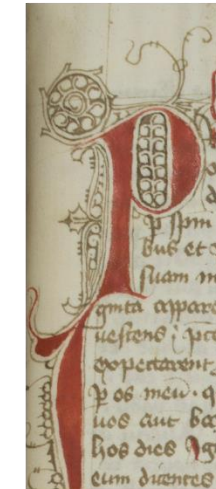 P
p spm
bus et
suam m
ginta appare
uescens
expectarent
p os meu . q
uos aut ba
hos dies
eum dicentes